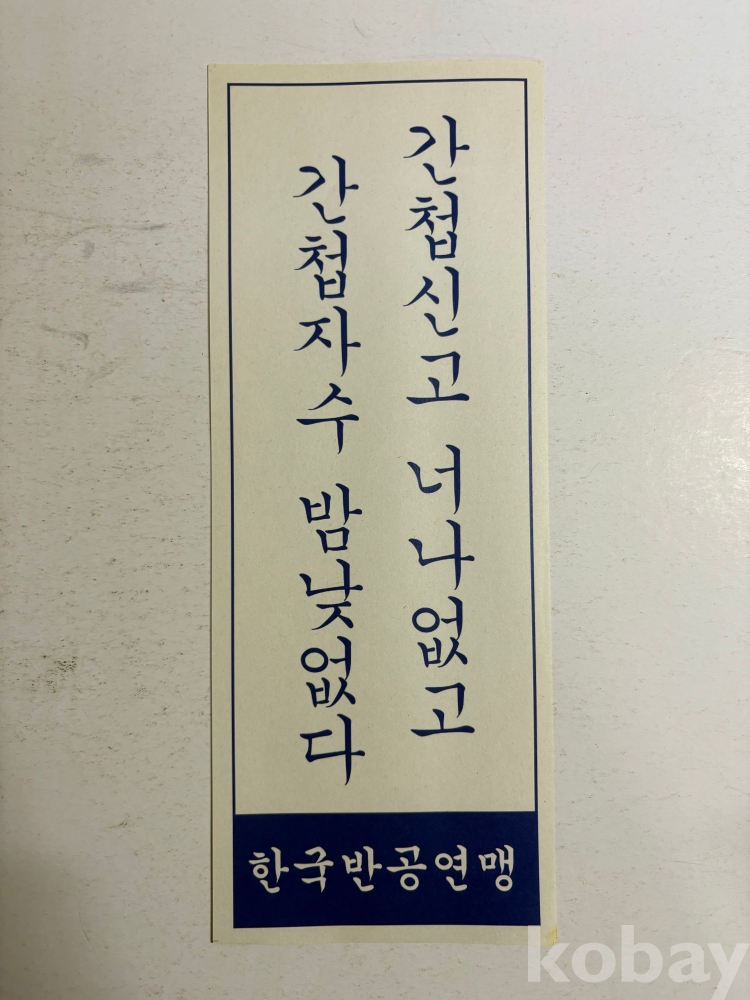 간첩신고 너나없고
간첩자수 밤낮없다
한국반공연맹
kobay